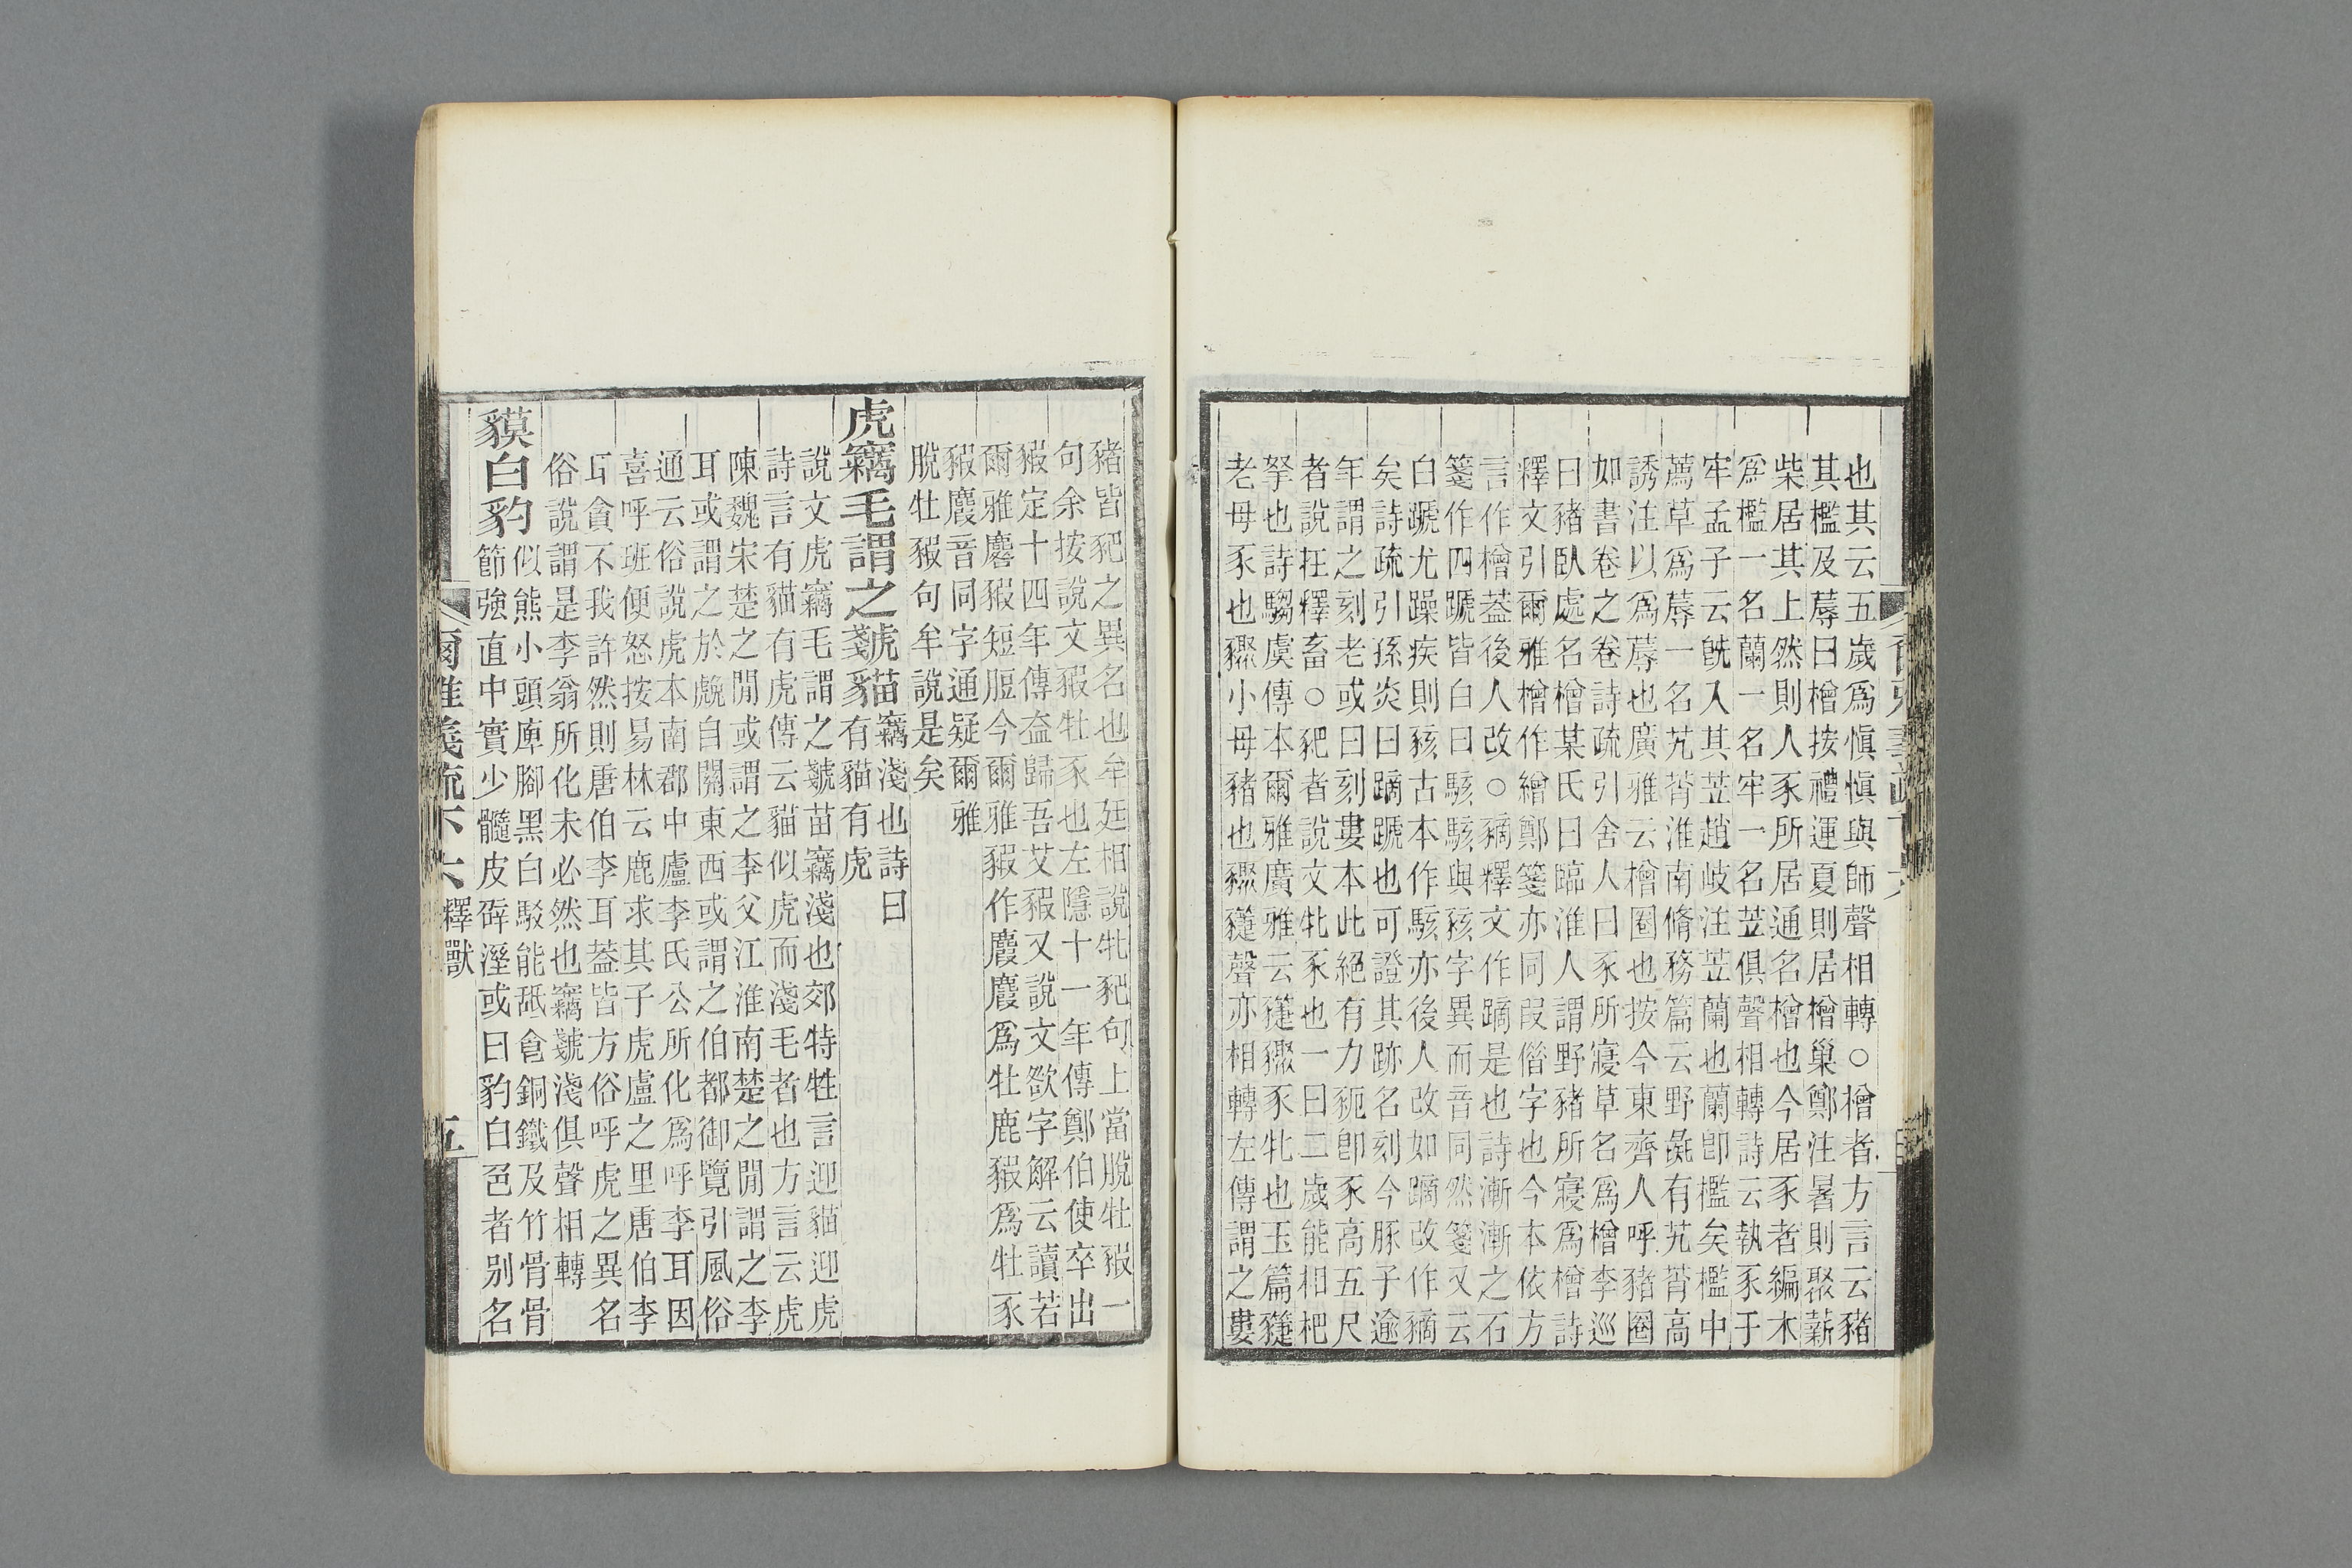 也其云五歲爲慎慎與師聲相轉○橧者方言云豬
其檻及蓐曰橧按禮運夏則居橧巢鄭注暑則聚薪
柴居其上然則人豕所居通名橧也今居豕者編木
爲檻一名蘭一名牢一名苙俱聲相轉詩云執豕于
牢孟子云旣入其苙趙岐注苙蘭也蘭卽檻矣檻中
薦草爲蓐一名艽莦淮南脩務篇云野彘有艽莦高
誘注以爲蓐也廣雅云橧圈也按今東齊人呼豬圈
如書卷之卷詩疏引舍人曰豕所寢草名爲橧李巡
曰豬臥處名橧某氏曰臨淮人謂野豬所寢爲橧詩
釋文引爾雅橧作繒鄭箋亦同叚偕字也今本依方
言作橧葢後人改○豴釋文作蹢是也詩漸漸之石
箋作四蹏皆白曰駭駭與豥字異而音同然箋又云
白蹏尤躁疾則豥古本作駭亦後人改如蹢改作豴
矣詩疏引孫炎曰蹢蹏也可證其跡名刻今豚子逾
年謂之刻老或曰刻婁本此絕有力豟卽豕高五尺
者說在釋畜○豝者說文牝豕也一曰二歲能相杷
拏也詩騶虞傳本爾雅廣雅云䝏䝔豕牝也玉篇䝏
老母豕也䝔小母豬也䝔䝏聲亦相轉左傳謂之婁
豬皆豝之異名也牟廷相說牝豝句上當脫牡豭一
句余按說文豭牡豕也左隱十一年傳鄭伯使卒出
豭定十四年傳盍歸吾艾豭又說文㰲字解云讀若
爾雅麔豭短脰今爾雅豭作麚麚爲牡鹿豭爲牡豕
豭麚音同字通疑爾雅
脫牡豭句牟說是矣
虎竊毛謂之虦貓竊淺也詩曰
有貓有虎
說文虎竊毛謂之虦苗竊淺也郊特牲言迎貓迎虎
詩言有貓有虎傳云貓似虎而淺毛者也方言云虎
陳魏宋楚之閒或謂之李父江淮南楚之閒謂之李
耳或謂之於䖘自關東西或謂之伯都御覽引風俗
通云俗說虎本南郡中廬李氏公所化爲呼李耳因
喜呼班便怒按易林云鹿求其子虎盧之里唐伯李
耳貪不我許然則唐伯李耳葢皆方俗呼虎之異名
俗說謂是李翁所化未必然也竊虦淺俱聲相轉
貘白豹似熊小頭庳腳黑白駁能舐食銅鐵及竹骨骨
節強直中實少髓皮辟溼或曰豹白色者別名
爾雅義疏下六釋獸
五